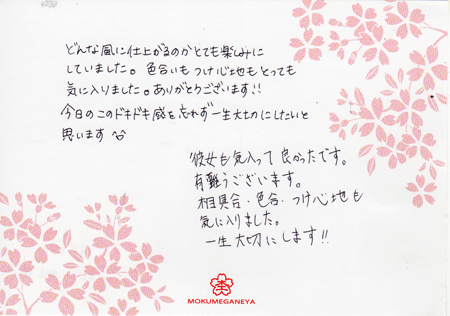 どんな風に仕上がるのかとても楽しみに
していました。色合いもつけ心地もとっても
気に入りました。ありがとうございます!!
今日のこのドキドキ感を忘れず一生大切にしたいと
思います
彼女も気入って良かったです。
有難うございます。
相具合・色合・つけ心地も
気に入りました。
一生大切にします!!
MOKUMEGANEYA